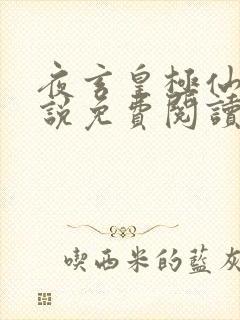 夜玄皇極仙
說免費閱讀
喫西米的藍灰